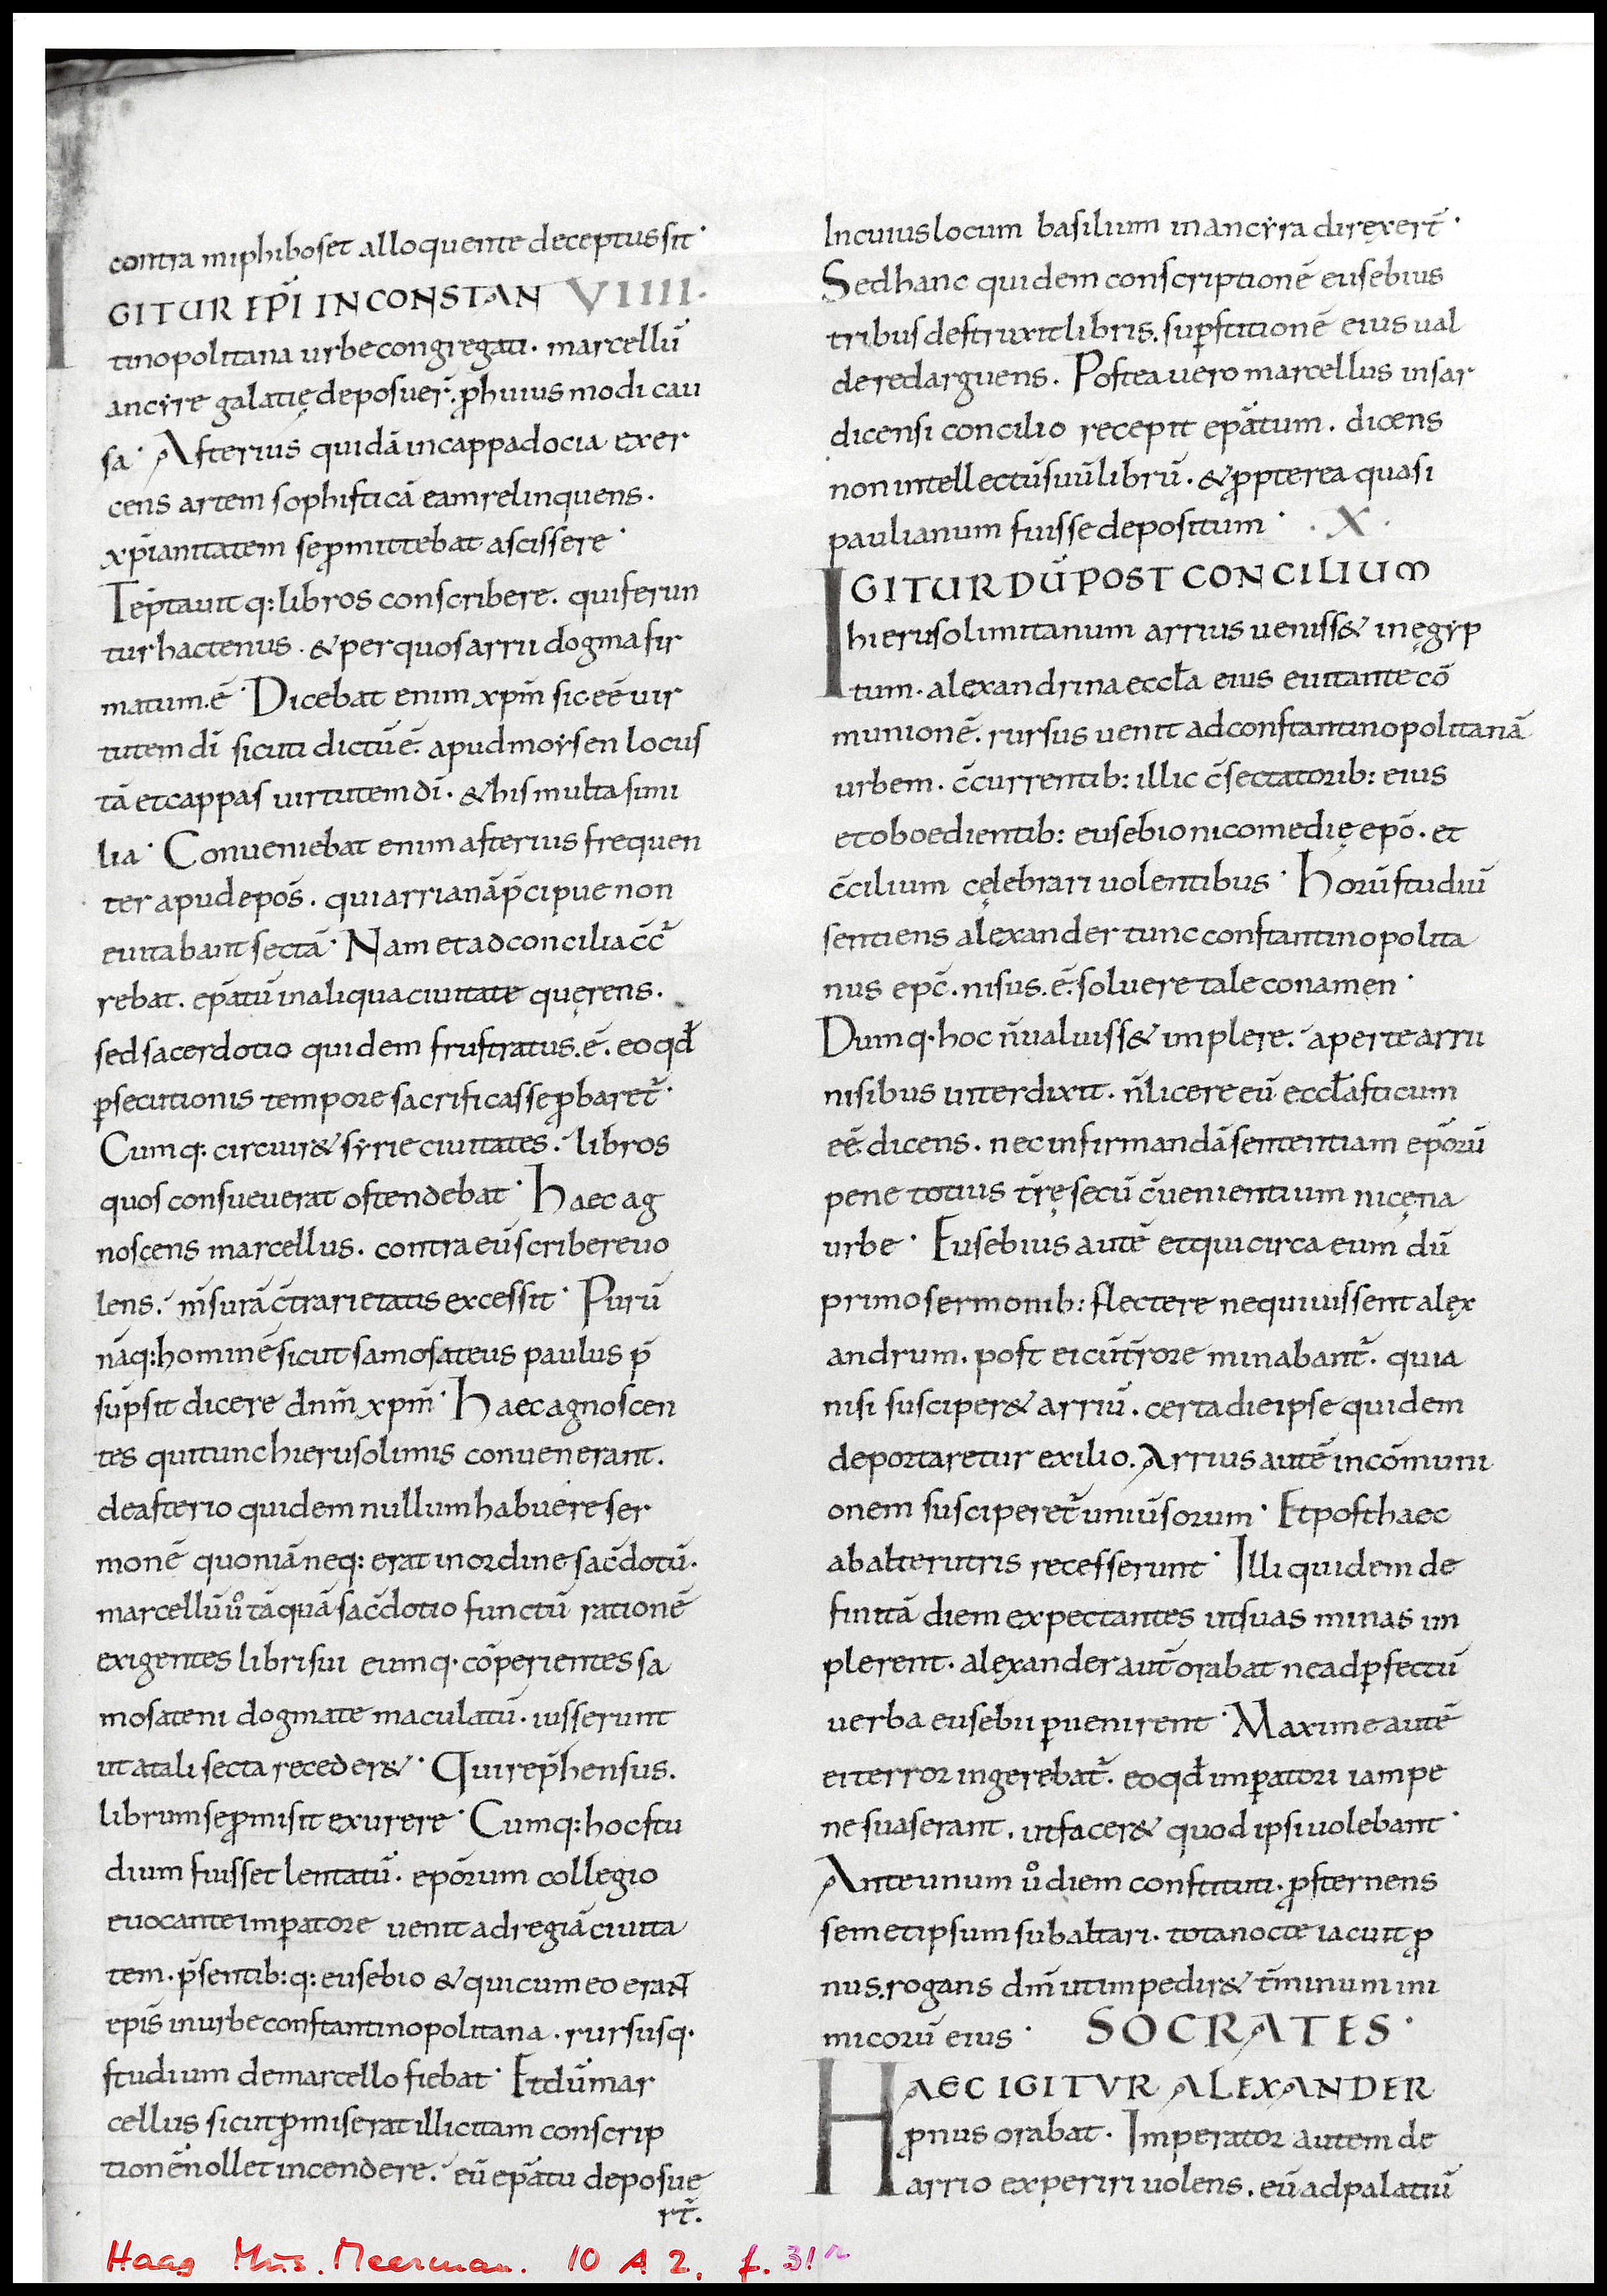 contra miphiboset alloquente deceptus sit·
IGITUR EP̅I IN CONSTAN VIIII·
tinopolitana urbe congregati· marcellū
ancẏre galatię deposuer̄· ꝓ huius modi cau
sa· Asterius quidā in cappadocia exer
cens artem sophisticā eam relinquens·
xp̅ianitatem se ꝓmittebat ascissere·
Teptauit q: libros conscribere· qui ferun
tur hactenus· & per quos arrii dogma fir
matum·ē· Dicebat enim xpm̅ sic eē uir
tutem dī sicuti dictū ē· apud moẏsen locus
tā et cappas uirtutem dī· & his multa simi
lia· Conueniebat enim asterius frequen
ter apud epos̅· qui arrianā p̅cipue non
euitabant sectā· Nam et ad concilia c̅c̅
rebat· ep̅atū in aliqua ciuitate quęrens·
sed sacerdotio quidem frustratus·ē· eo qđ
ꝑsecutionis tempore sacrificasse ꝓbaret̄·
Cumq: circuir& sẏrie ciuitates· libros
quos consueuerat ostendebat· Haec ag
noscens marcellus· contra eū scribere uo
lens· m̅surā c̅trarietatis excessit· Purū
nāq: hominē sicut samosateus paulus p̅
sūpsit dicere dnm̅ xpm̅· Haec agnoscen
tes qui tunc hierusolimis conuenerant·
de asterio quidem nullum habuere ser
monē quoniā neq: erat in ordine sac̅dotū·
marcellū ů tāquā sac̅dotio functū rationē
exigentes libri sui eumq· cōperientes sa
mosateni dogmate maculatū· iusserunt
ut a tali secta receder&· Qui rep̅hensus·
librum se ꝓmisit exurere· Cumq: hoc stu
dium fuisset lentatū· epōrum collegio
euocante imꝑatore uenit ad regiā ciuita
tem· p̅sentib: q: eusebio & qui cum eo erant
epis̅ in urbe constantinopolitana· rursusq·
studium de marcello fiebat· Et dū mar
cellus sicut ꝓmiserat illicitam conscrip
tionē nollet incendere· eū ep̅atu deposue
rt̄·
In cuius locum basilium in ancẏra direxert̄·
Sed hanc quidem conscriptionē eusebius
tribus destruxit libris· suꝑstitionē eius ual
de redarguens· Postea uero marcellus in sar
dicensi concilio recepit ep̅atum· dicens
non intellectū suū librū· & ꝓpterea quasi
paulianum fuisse depositum· ·X·
IGITUR DŪ POST CONCILIUM
hierusolimitanum arrius ueniss& in ęgẏp
tum· alexandrina eccl̄a eius euitante cō
munionē· rursus uenit ad constantinopolitanā
urbem· c̅currentib: illic c̅sectatorib: eius
et oboedientib: eusebio nicomedię epō· et
c̅cilium cęlebrari uolentibus· Horū studiū
sentiens alexander tunc constantinopolita
nus epc̅· nisus·ē· soluere tale conamen·
Dumq· hoc n̅ ualuiss& implere· aperte arrii
nisibus interdixit· n̅ licere eū eccl̄asticum
eē dicens· nec infirmandā sententiam epōrū
pene totius t̅rę secū c̅uenientium nicęna
urbe· Eusebius autē et qui circa eum dū
primo sermonib: flectere nequiuissent alex
andrum· post ei cū t̅rore minabant̄· quia
nisi susciper& arriū· certa die ipse quidem
deportaretur exilio· Arrius autē in cōmuni
onem susciperet̄ uniūsorum· Et post haec
ab alterutris recesserunt· Illi quidem de
finitā diem expectantes ut suas minas im
plerent· alexander aut̄ orabat ne ad ꝑfectū
uerba eusebii ꝑuenirent· Maxime autē
ei terror ingerebat̄· eo qđ imꝑatori iam pe
ne suaserant· ut facer& quod ipsi uolebant·
Ante unum ů diem constituti· ꝓsternens
semetipsum sub altari· tota nocte iacuit ꝓ
nus· rogans dm̅ ut impedir& t̅minum ini
micorū eius· SOCRATES·
HAEC IGITVR ALEXANDER
ꝓnus orabat· Imperator autem de
arrio experiri uolens· eū ad palatiū
Haag Mus. Meerman. 10 A 2, f. 31r